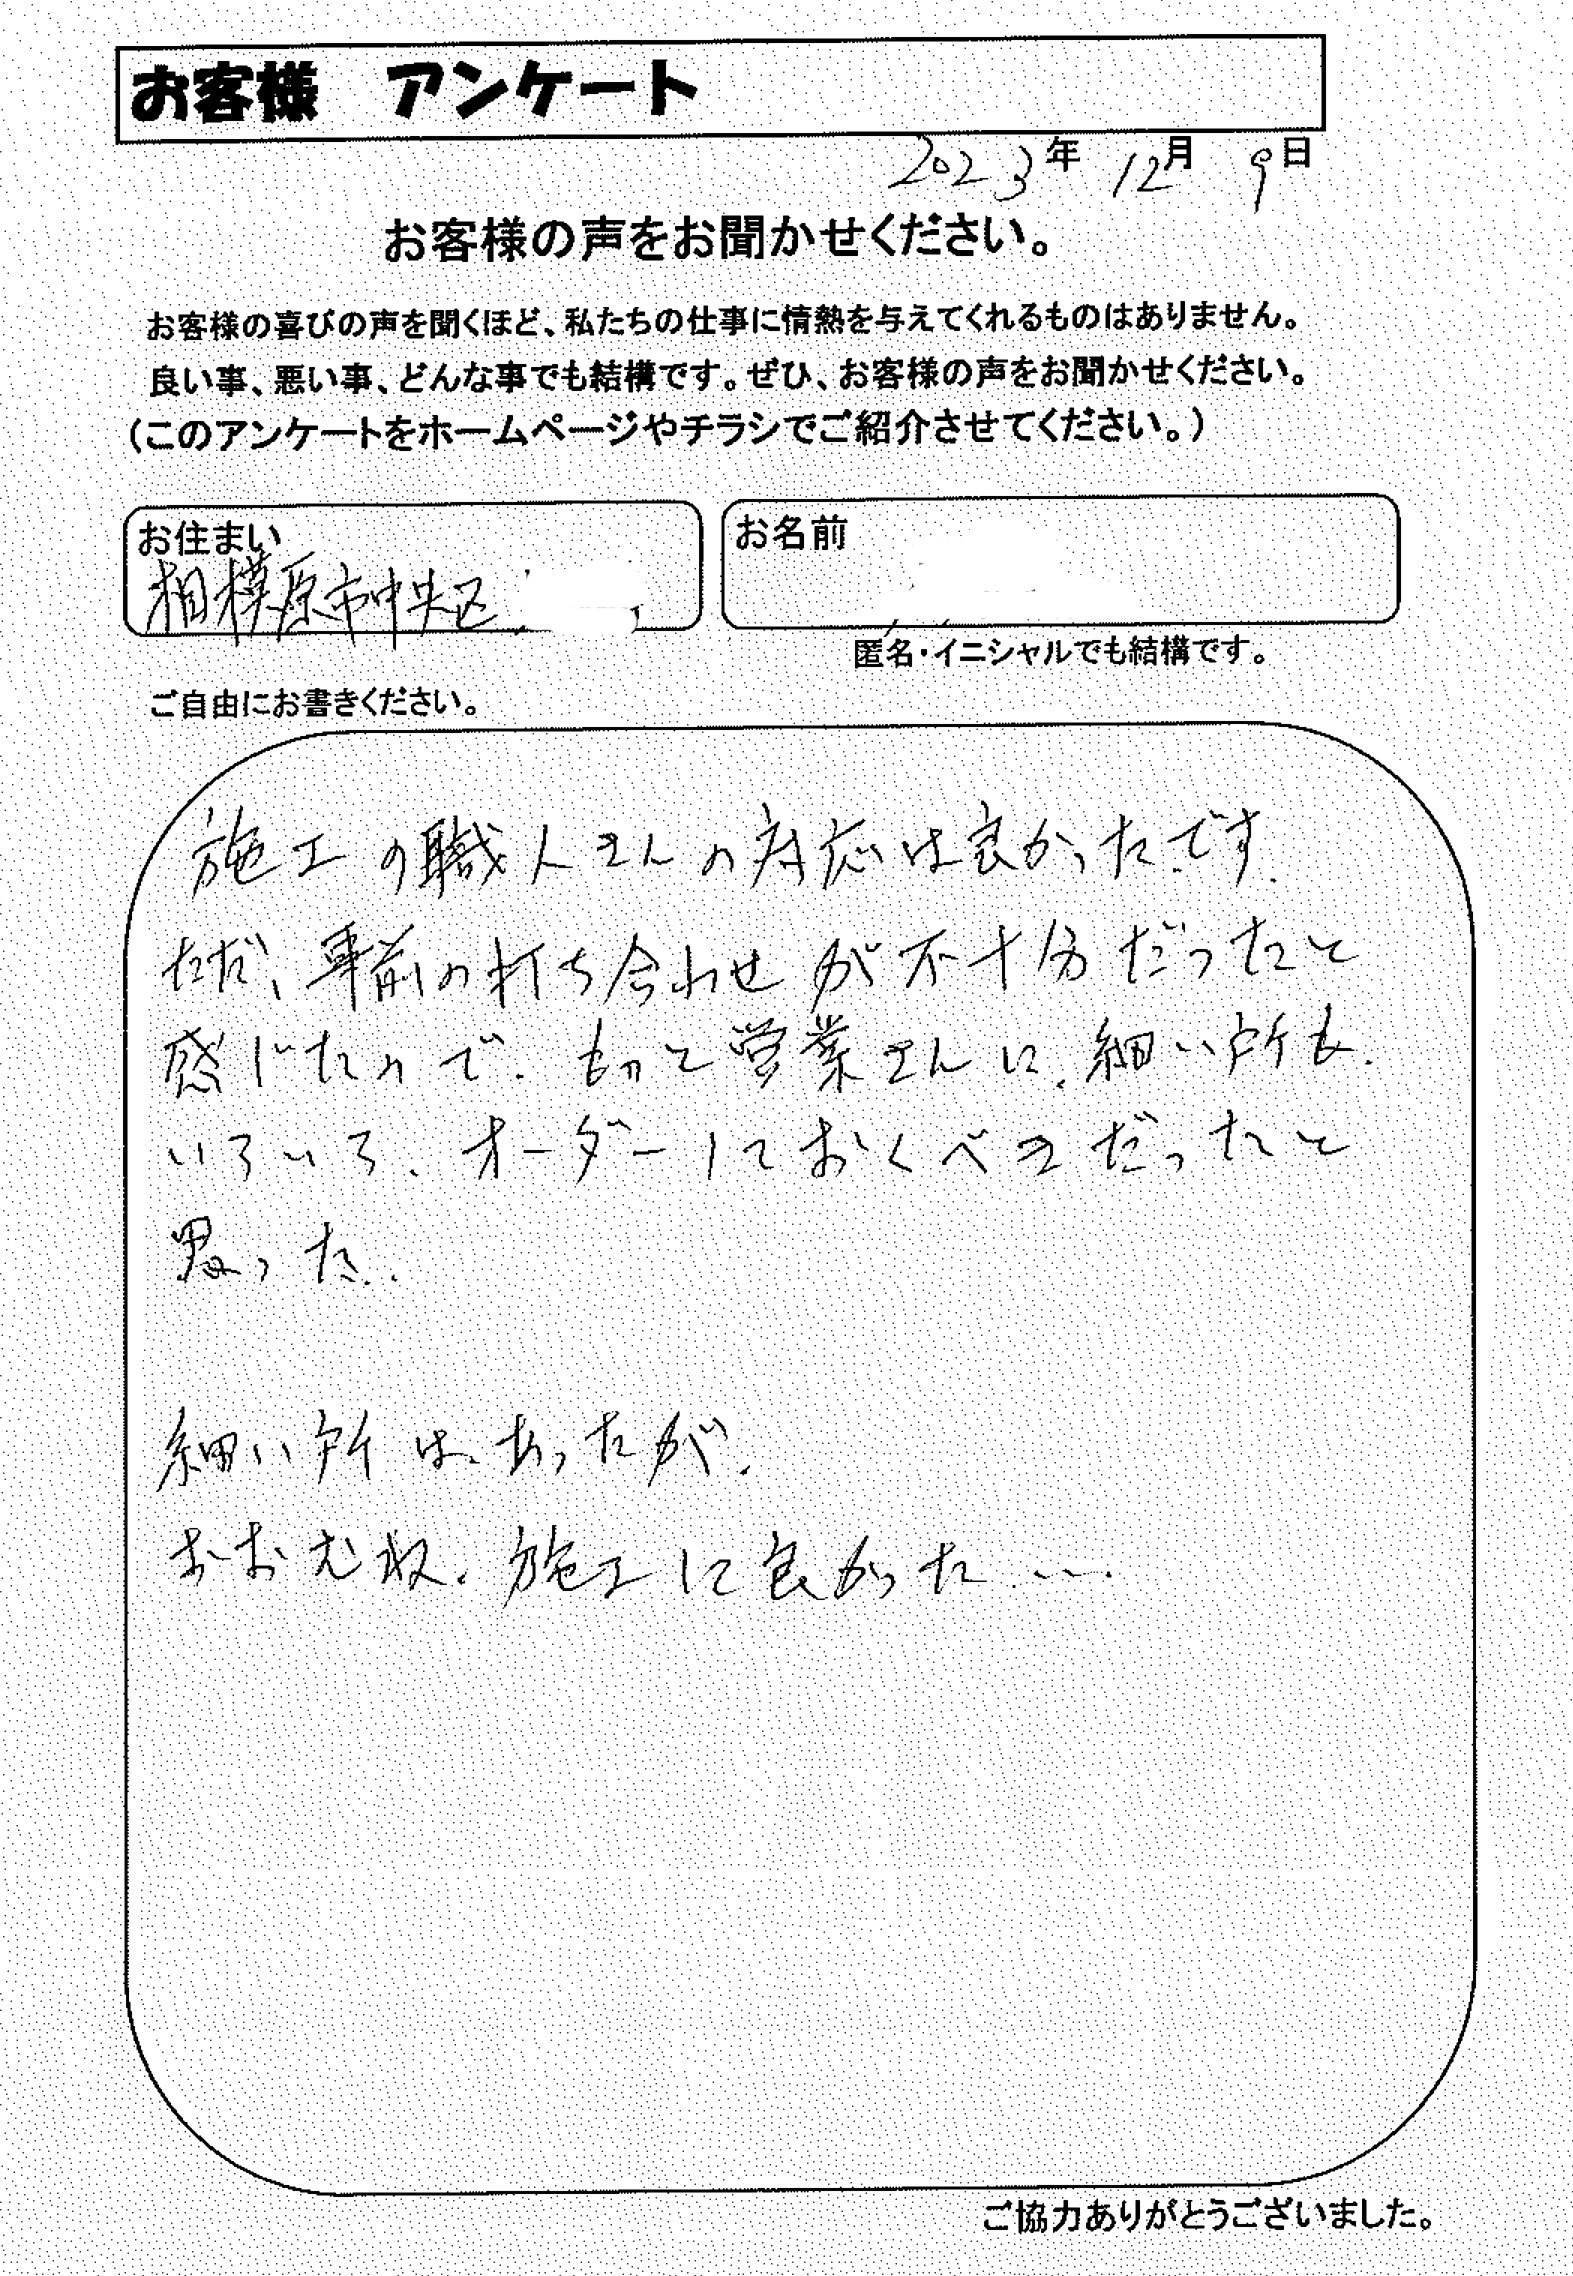 お客様 アンケート
2023年 12月 9日
お客様の声をお聞かせください。
お客様の喜びの声を聞くほど、私たちの仕事に情熱を与えてくれるものはありません。
良い事、悪い事、どんな事でも結構です。ぜひ、お客様の声をお聞かせください。
(このアンケートをホームページやチラシでご紹介させてください。)
お住まい
相模原市中央区
お名前
匿名・イニシャルでも結構です。
ご自由にお書きください。
施工の職人さんの対応は良かったです.
ただ、事前の打ち合わせが不十分だったと
感じたので. もっと営業さんに. 細い所も.
いろいろ. オーダーしておくべきだったと
思った..
細い所は、あったが.
おおむね. 施工に良かった....
ご協力ありがとうございました。